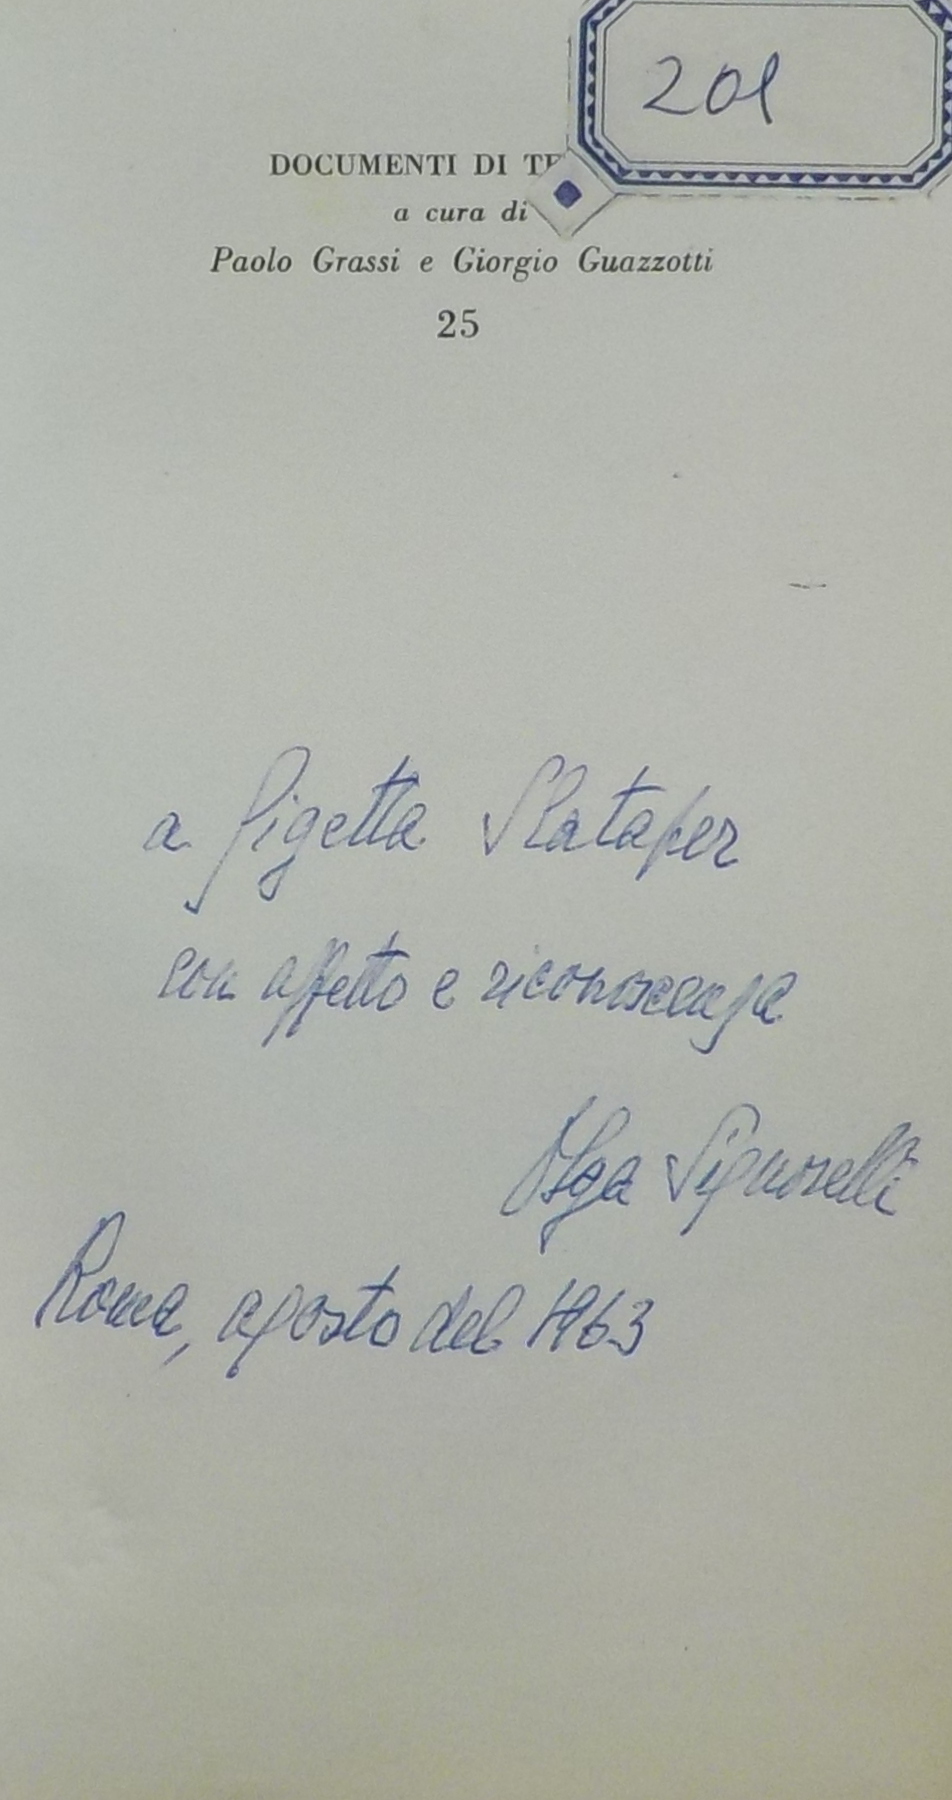 201
DOCUMENTI DI TE
a cura di
Paolo Grassi e Giorgio Guazzotti
25
a Gigetta Slataper
con affetto e riconoscenza
Olga Signorelli
Roma, agosto del 1963